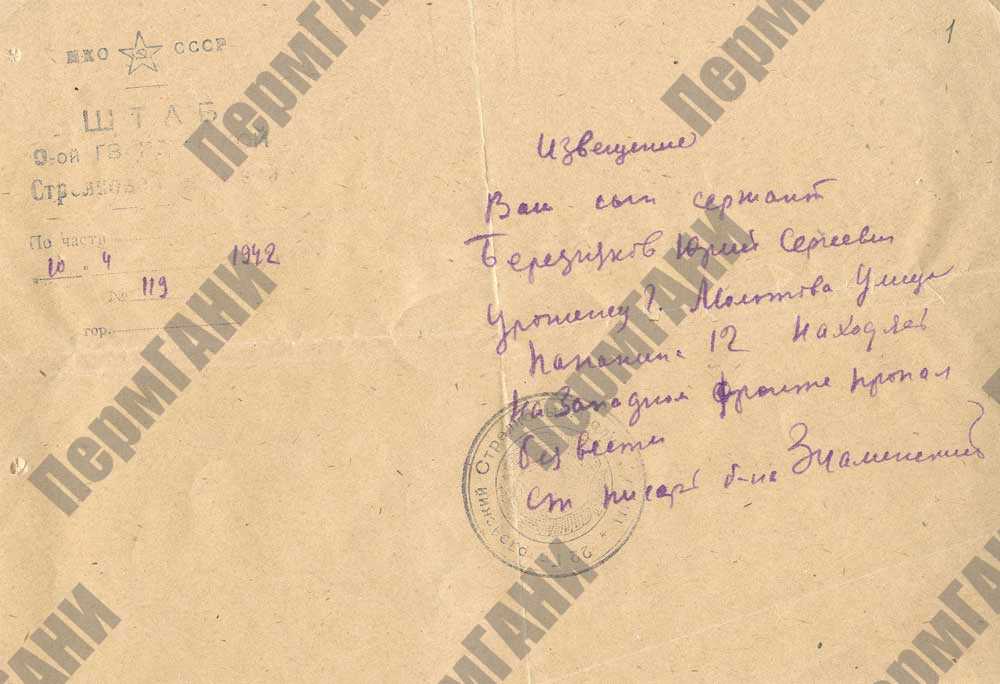 НКО СССР
1
ШТАБ
9-ой ГВ
По части
10. 4 1942
№ 119
гор.
Извещение
Ваш сын сержант
Юрий Сергеевич
Уроженец г. Молотова Улица
Папанина 12 находясь
на Западном фронте пропал
без вести
Ст писарь б-на Знаменский
ПермГАНИ
ПермГАНИ
ПермГАНИ
ПермГАНИ